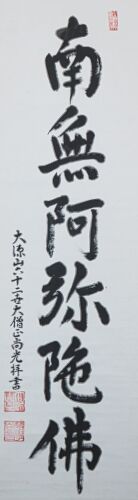 南無阿弥陀佛
大源山六十二世大僧正尚光拝書